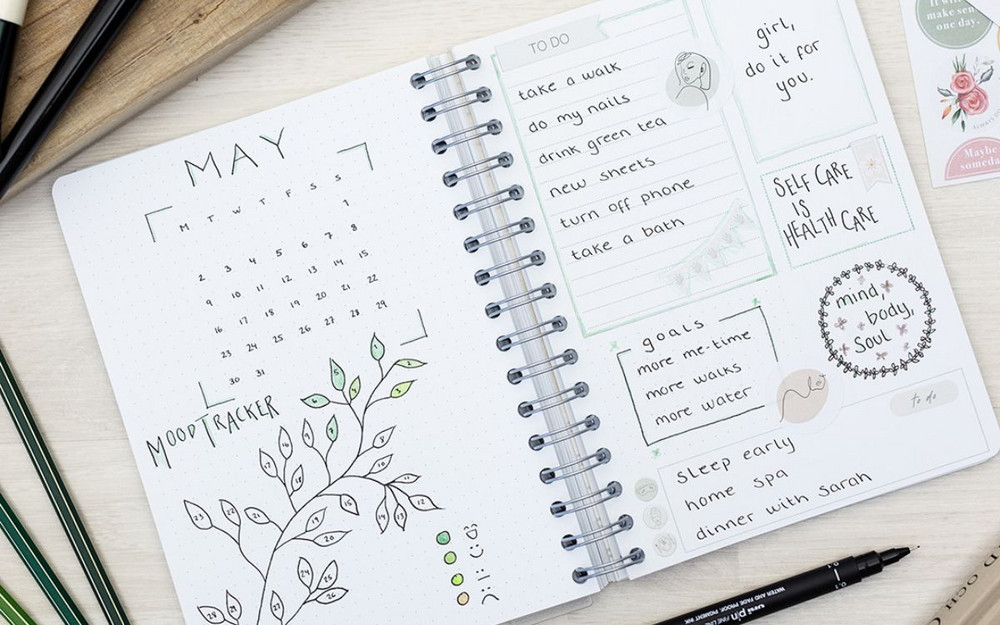 MAY
M T W T F S S
1
2 3 4 5 6 7 8
9 10 11 12 13 14 15
16 17 18 19 20 21 22
23 24 25 26 27 28 29
30 31
MOOD TRACKER
1
2
3
5
7
8
10
11
12
13
14
17
18
19
20
21
22
23
24
25
26
28
29
TO DO
take a walk
do my nails
drink green tea
new sheets
turn off phone
take a bath
girl,
do it for
you.
SELF CARE
IS
HEALTH CARE
mind,
body,
soul
goals
more me-time
more walks
more water
to do
sleep early
home spa
dinner with sarah
It will
make sen
one day.
Maybe
someda
uni pin FINE LINE
WATER AND FADE PROOF, PIGMENT INK
0.1